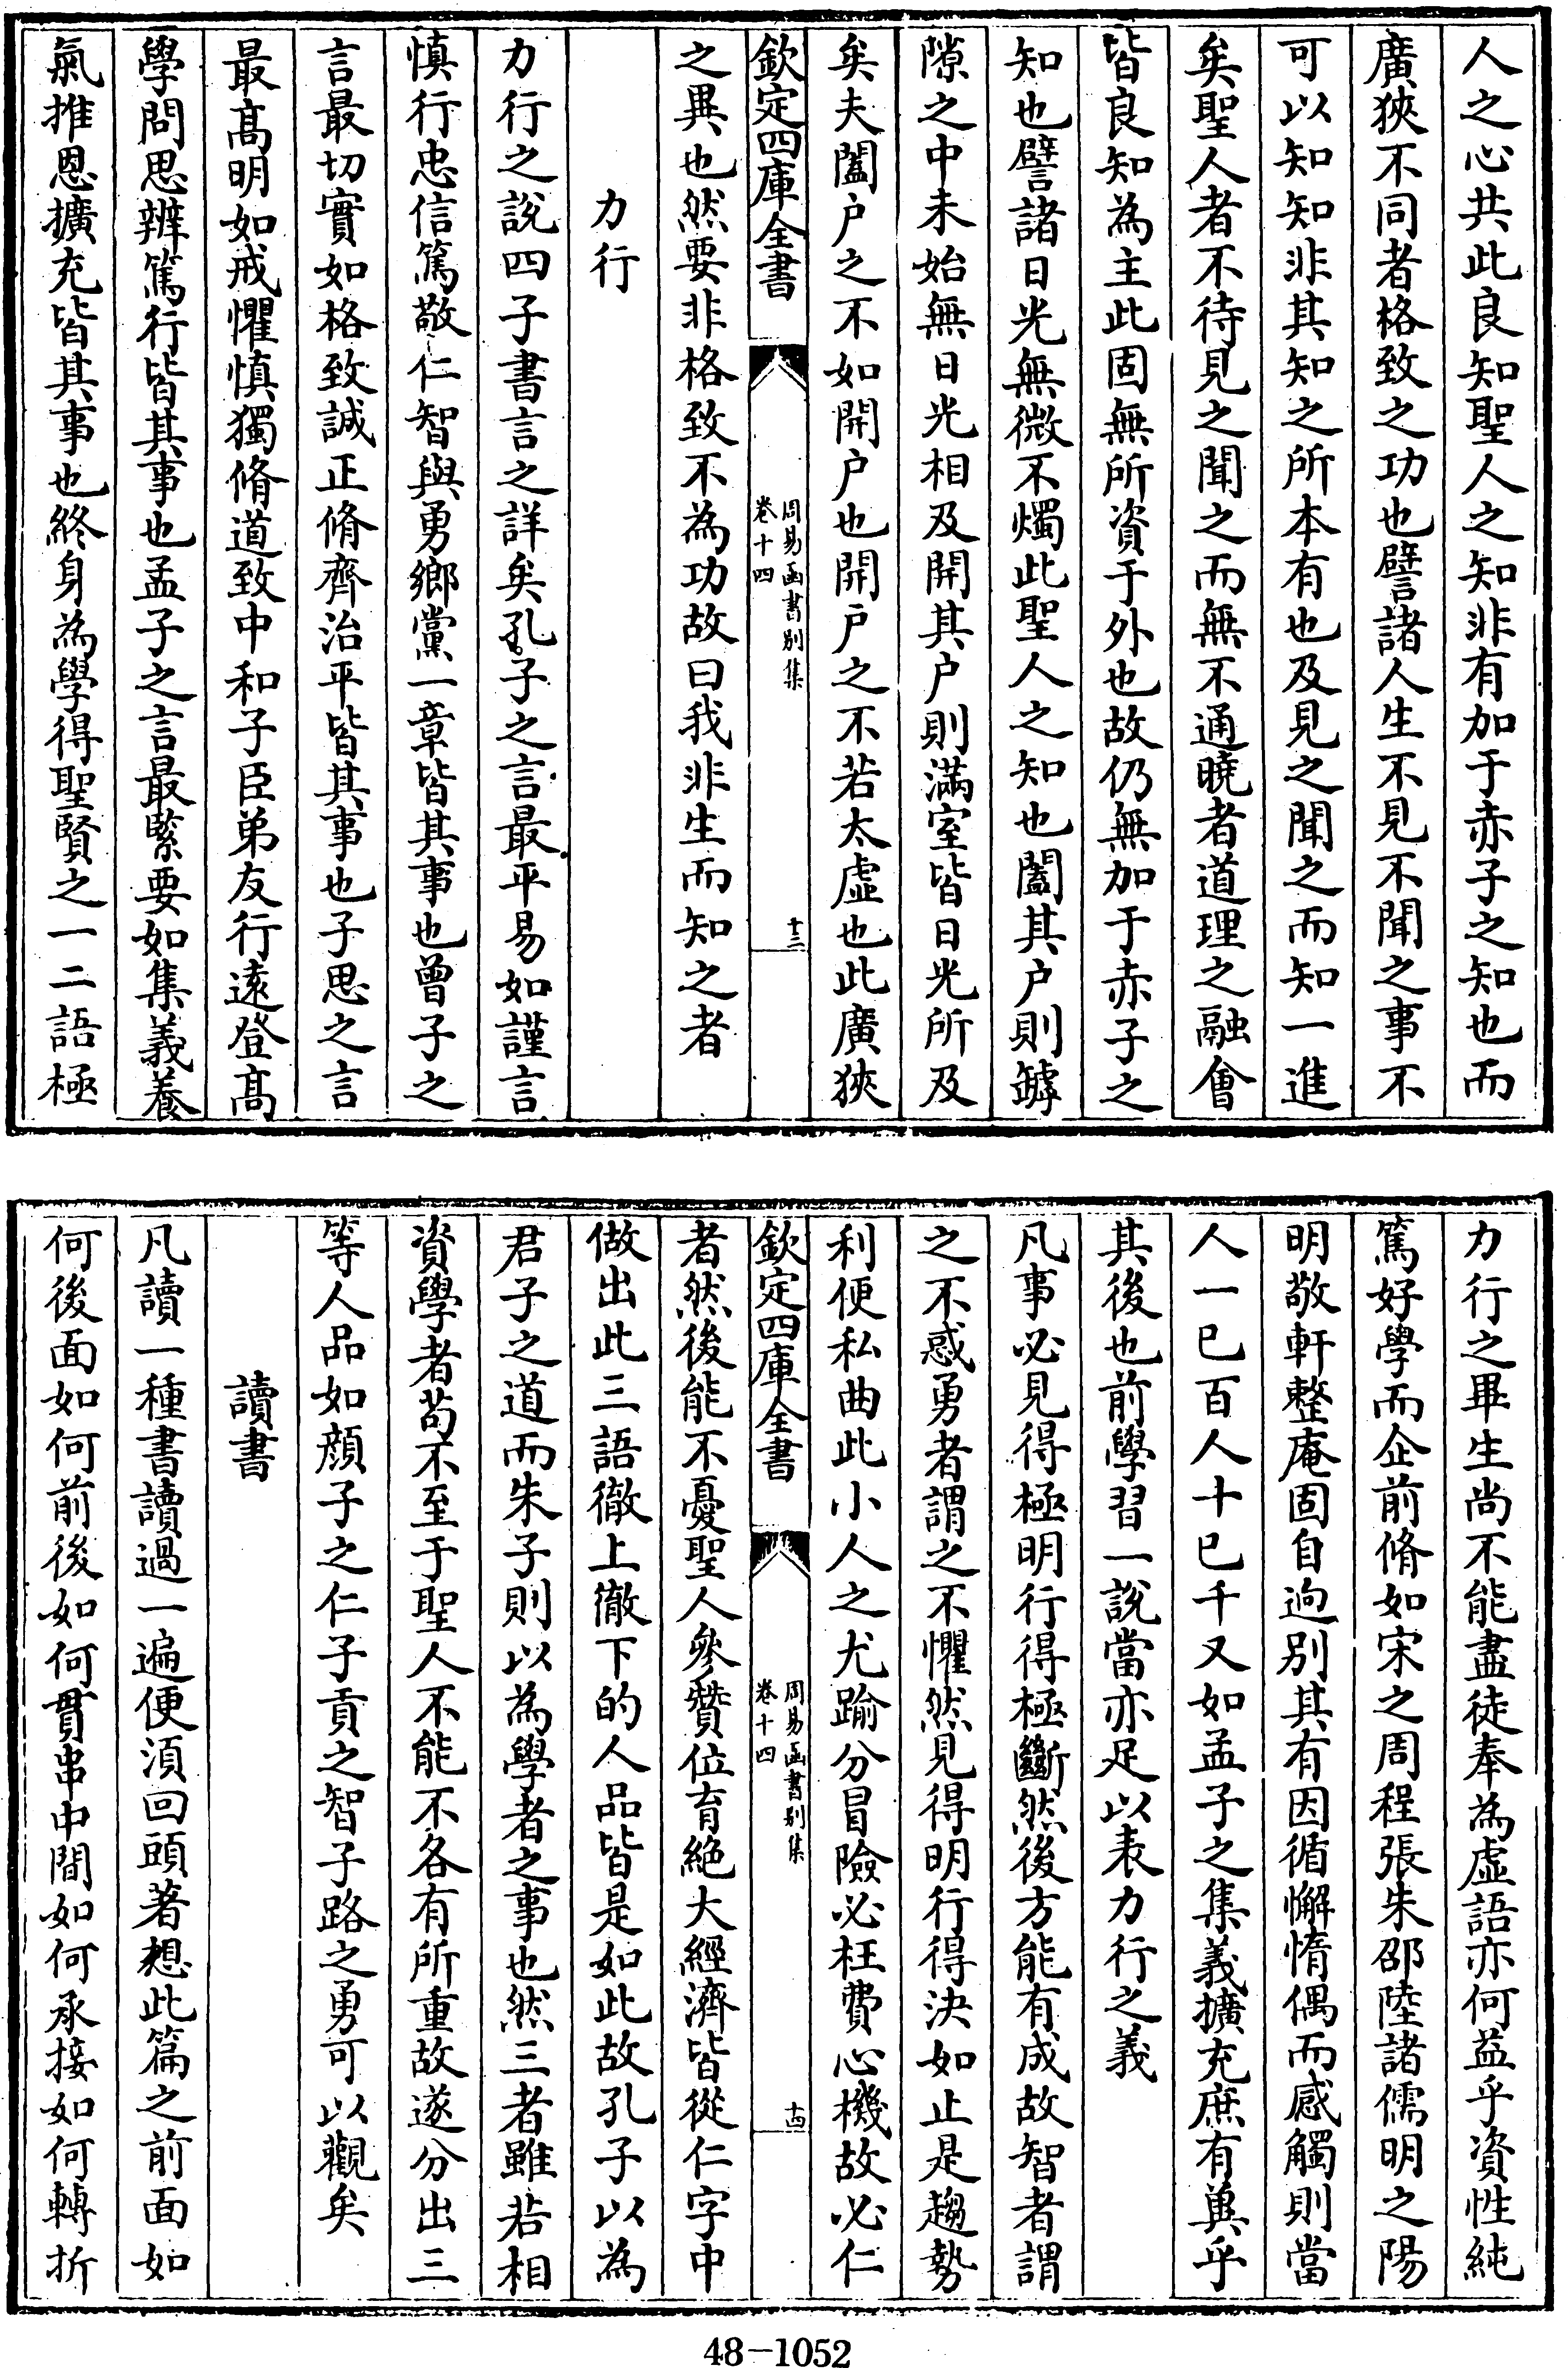 人之心共此良知聖人之知非有加于赤子之知也而
廣狹不同者格致之功也譬諸人生不見不聞之事不
可以知知非其知之所本有也及見之聞之而知一進
矣聖人者不待見之聞之而無不通曉者道理之融會
皆良知為主此固無所資于外也故仍無加于赤子之
知也譬諸日光無微不燭此聖人之知也闔其户則罅
隙之中未始無日光相及開其户則滿室皆日光所及
矣夫闔户之不如開户也開户之不若太虛也此廣狹
欽定四庫全書
周易函書別集
卷十四
十三
之異也然要非格致不為功故曰我非生而知之者
力行
力行之說四子書言之詳矣孔子之言最平易如謹言
慎行忠信篤敬仁智與勇鄉黨一章皆其事也曾子之
言最切實如格致誠正脩齊治平皆其事也子思之言
最高明如戒懼慎獨脩道致中和子臣弟友行遠登高
學問思辨篤行皆其事也孟子之言最緊要如集義養
氣推恩擴充皆其事也終身為學得聖賢之一二語極
力行之畢生尚不能盡徒奉為虛語亦何益乎資性純
篤好學而企前脩如宋之周程張朱邵陸諸儒明之陽
明敬軒整庵固自逈別其有因循懈惰偶而感觸則當
人一已百人十已千又如孟子之集義擴充庶有兾乎
其後也前學習一說當亦足以表力行之義
凡事必見得極明行得極斷然後方能有成故智者謂
之不惑勇者謂之不懼然見得明行得決如止是趨勢
利便私曲此小人之尤踰分冒險必枉費心機故必仁
欽定四庫全書
周易函書別集
卷十四
十四
者然後能不憂聖人參贊位育絕大經濟皆從仁字中
做出此三語徹上徹下的人品皆是如此故孔子以為
君子之道而朱子則以為學者之事也然三者雖若相
資學者苟不至于聖人不能不各有所重故遂分出三
等人品如顔子之仁子貢之智子路之勇可以觀矣
讀書
凡讀一種書讀過一遍便須回頭著想此篇之前面如
何後面如何前後如何貫串中間如何承接如何轉折
48-1052